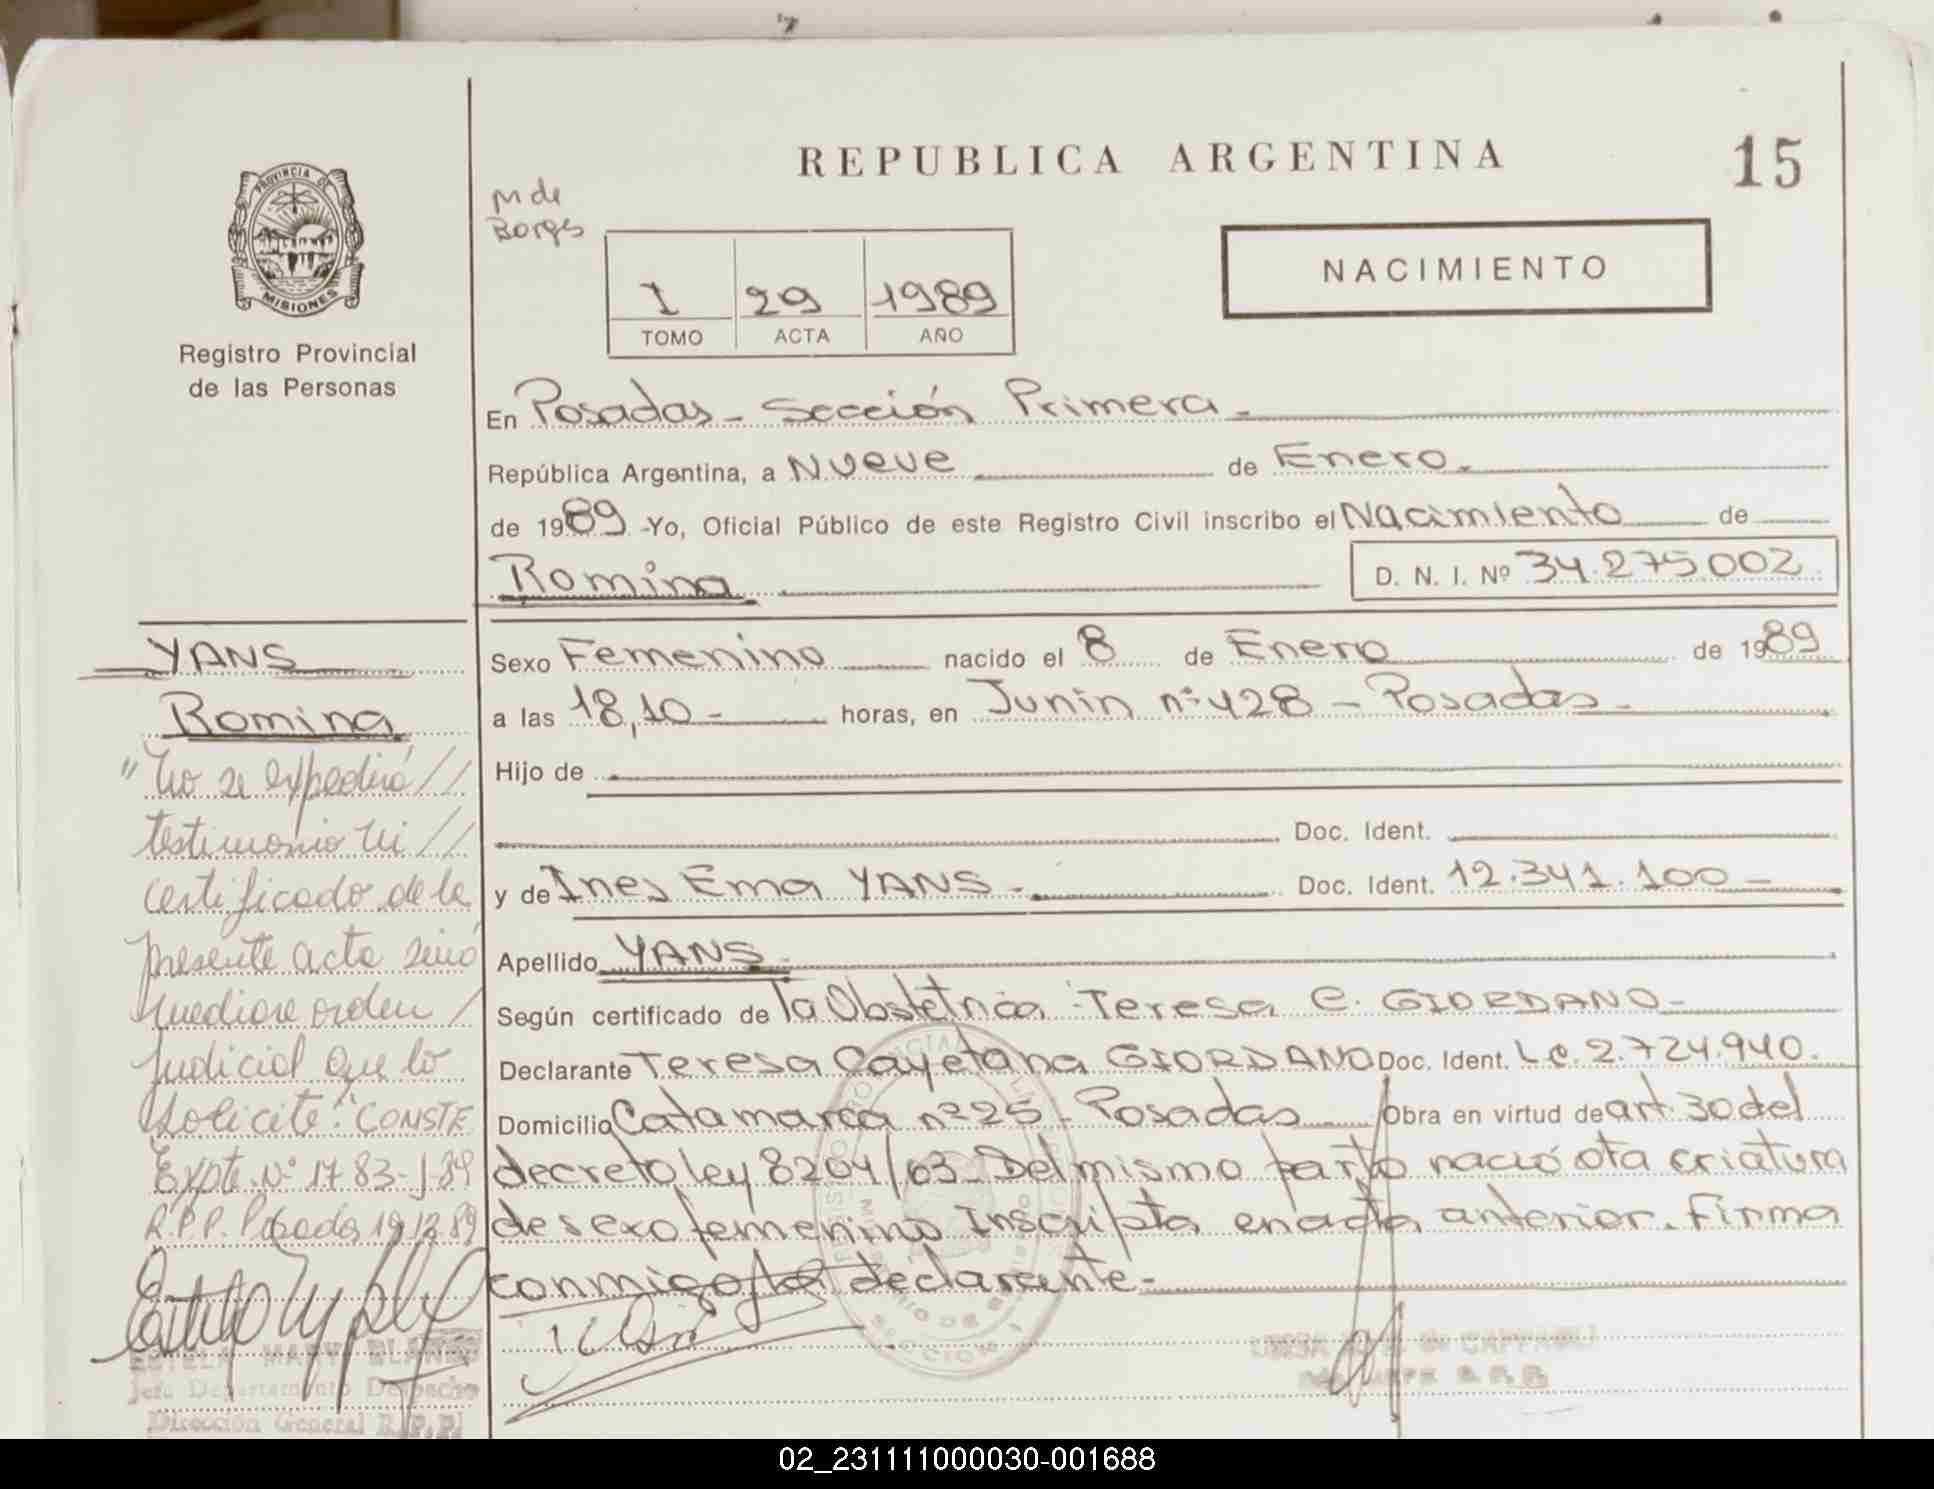 REPUBLICA ARGENTINA
15
PROVINCIA DE
MISIONES
Registro Provincial
de las Personas
M de
Borges
I 29 1989
TOMO ACTA AÑO
NACIMIENTO
En Posadas - Sección Primera -
República Argentina, a Nueve de Enero.
de 1989 -Yo, Oficial Público de este Registro Civil inscribo el Nacimiento de
Romina D. N. I. Nº 34.275.002
Sexo Femenino nacido el 8 de Enero de 1989
a las 18,10 - horas, en Junin nº 428 - Posadas -
Hijo de
Doc. Ident.
y de Ines Ema YANS - Doc. Ident. 12.341.100 -
Apellido YANS -
Según certificado de la Obstetrica Teresa C. GIORDANO -
Declarante Teresa Cayetana GIORDANO Doc. Ident. L.C. 2.724.940.
Domicilio Catamarca nº 25 - Posadas Obra en virtud de art. 30 del
decreto ley 8204/63 - Del mismo parto nació ota criatura
de sexo femenino Inscripta en acta anterior. Firma
conmigo la declarante -
YANS
Romina
"No se expedirá //
testimonio ni //
certificado de la
presente acta sinó
mediare orden /
Judicial que lo
solicite". CONSTE
Expte. Nº 1783-J-89
R.P.P. Posadas 19/12/89
ESTELA MARY BLANCO
Jefe Departamento Despacho
Dirección General R.P.P.
SECCION 1
de CAPPAGLI
R.P.P.
02_231111000030-001688